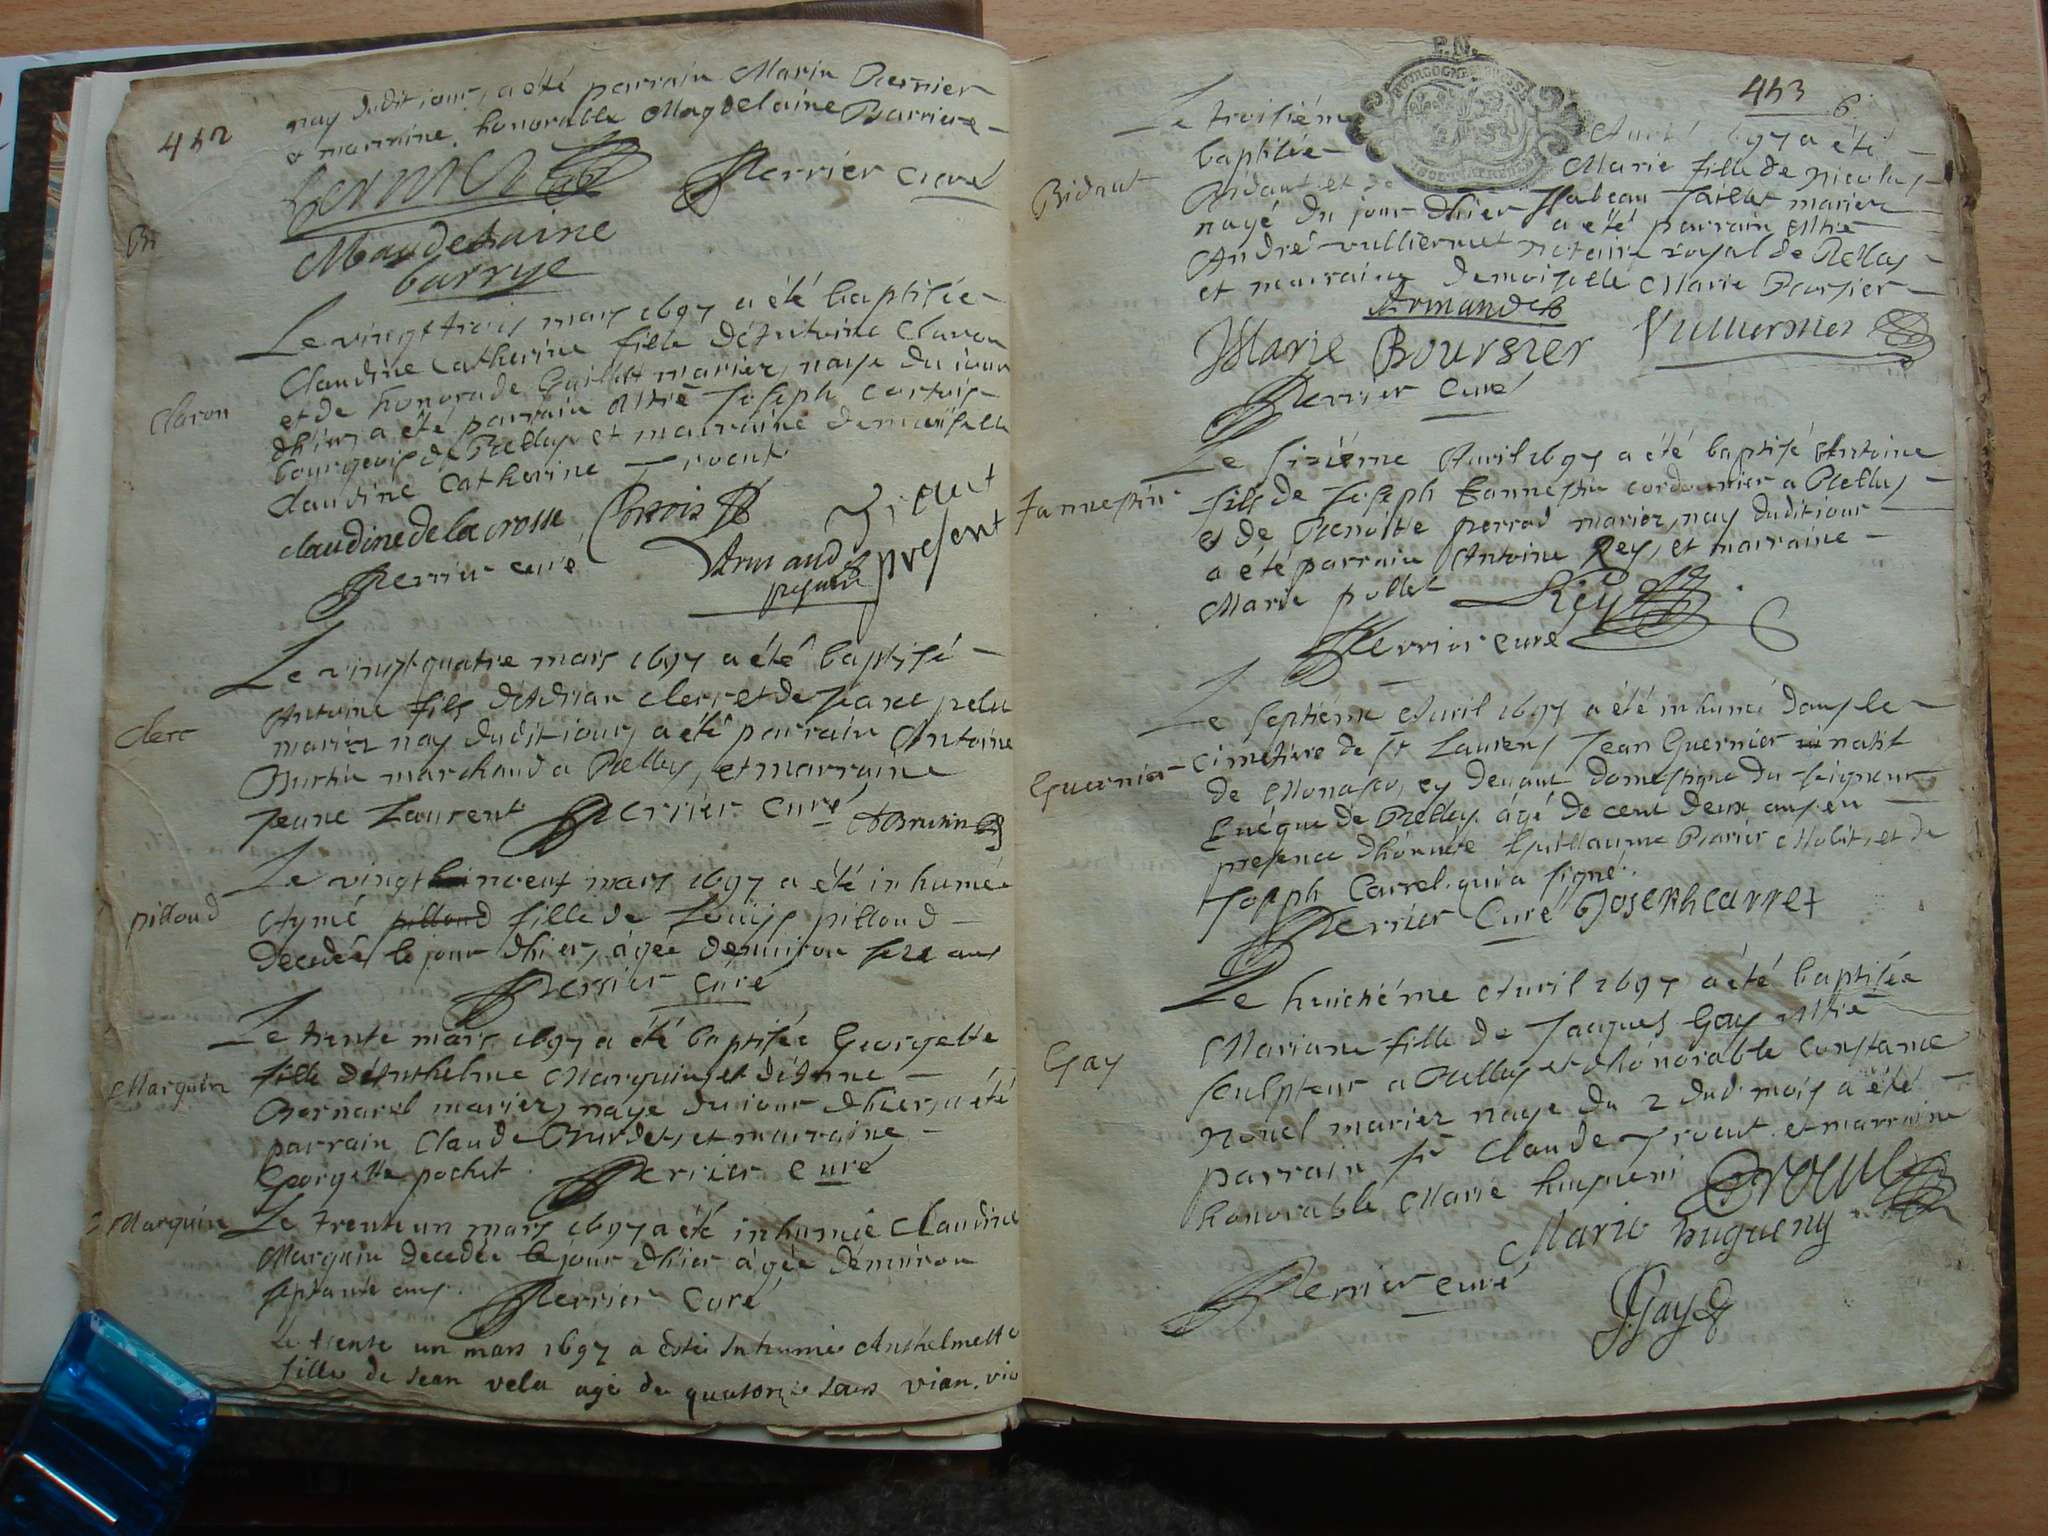 452
nay dudit jour, a été parrain Marin Bernier
& marraine honorable Magdelaine Barriere
Perrier curé
Maudelaine
barrye
Le vingt trois mars 1697 a été baptisée
Claudine Catherine fille d'Antoine Claron
et de honorade Guillot mariez, naye du jour
d'hier, a été parrain Mtre Joseph Cortois
bourgeois de Belley et marraine demoiselle
Claudine Catherine
Claron
claudine de la crosse Cortois
present
Perrier curé Armand
present
Le vingt quatre mars 1697 a été baptisé
Antoine fils d'Adrian Clerc et de Jeane pelu
mariez nay dudit jour, a été parrain Antoine
Burtin marchand a Belley, et marraine
Jeane Laurent Perrier curé ABrutin
Clerc
Le vingt noeuf mars 1697 a été inhumée
Aymé pillond fille de Louijs pillond
decedée le jour d'hier, âgée d'environ seze ans
Perrier curé
pillond
Le trente mars 1697 a été baptisée Georgette
fille d'Anthelme Marquin, et d'Anne
Bernard mariez, nayé du jour d'hier, a été
parrain Claude Burdet, et marraine
Georgette pochet. Perrier curé
Marquin
Le trente un mars 1697 a été inhumée Claudine
Marquin decedée le jour d'hier âgée d'environ
septante ans. Perrier Curé
2 Marquin
Le trente un mars 1697 a esté Inhumée Anthelmette
fille de Jean vela agé de quatorze
P.N.
453
6
Le troisiéme Avril 1697 a été
baptisée Marie fille de Nicolas
Bidaut et de Isabeau Faillet mariez
nayé du jour d'hier a été parrain Mtre
André vulliermet notaire royal de Belley
et marraine demoiselle Marie Boursier
Bidaut
Armand
Marie Boursier Vulliermet
Perrier Curé
Le siziéme Avril 1697 a été baptisé Antoine
fils de Joseph Jannestin cordonnier a Belley
& de Benoîte perrod mariez, nay dudit jour
a été parrain Antoine Rey, et marraine
Marie pollet Rey
Perrier curé
Jannestin
Le septiéme Avril 1697 a été inhumé dans le
cimetiere de St Laurens Jean Guernier natif
de Monaco, cy devant domestique du seigneur
Evéque de Belley âgé de cent deux ans en
presence d'honnéte Guillaume et de
Joseph Carrel. qui a signé.
Perrier Curé Josephcarrel
Guernier
Le huictiéme Avril 1697 a été baptisée
Mariane fille de Jacques Gay Mtre
sculpteur a Belley et d'honorable Constance
Nouel mariez naye du 2 dud. mois a été
parrain Sr Claude Trocut et marraine
honorable Marie hugueni Trocut
Marie hugueny
Perrier curé JGay
Gay